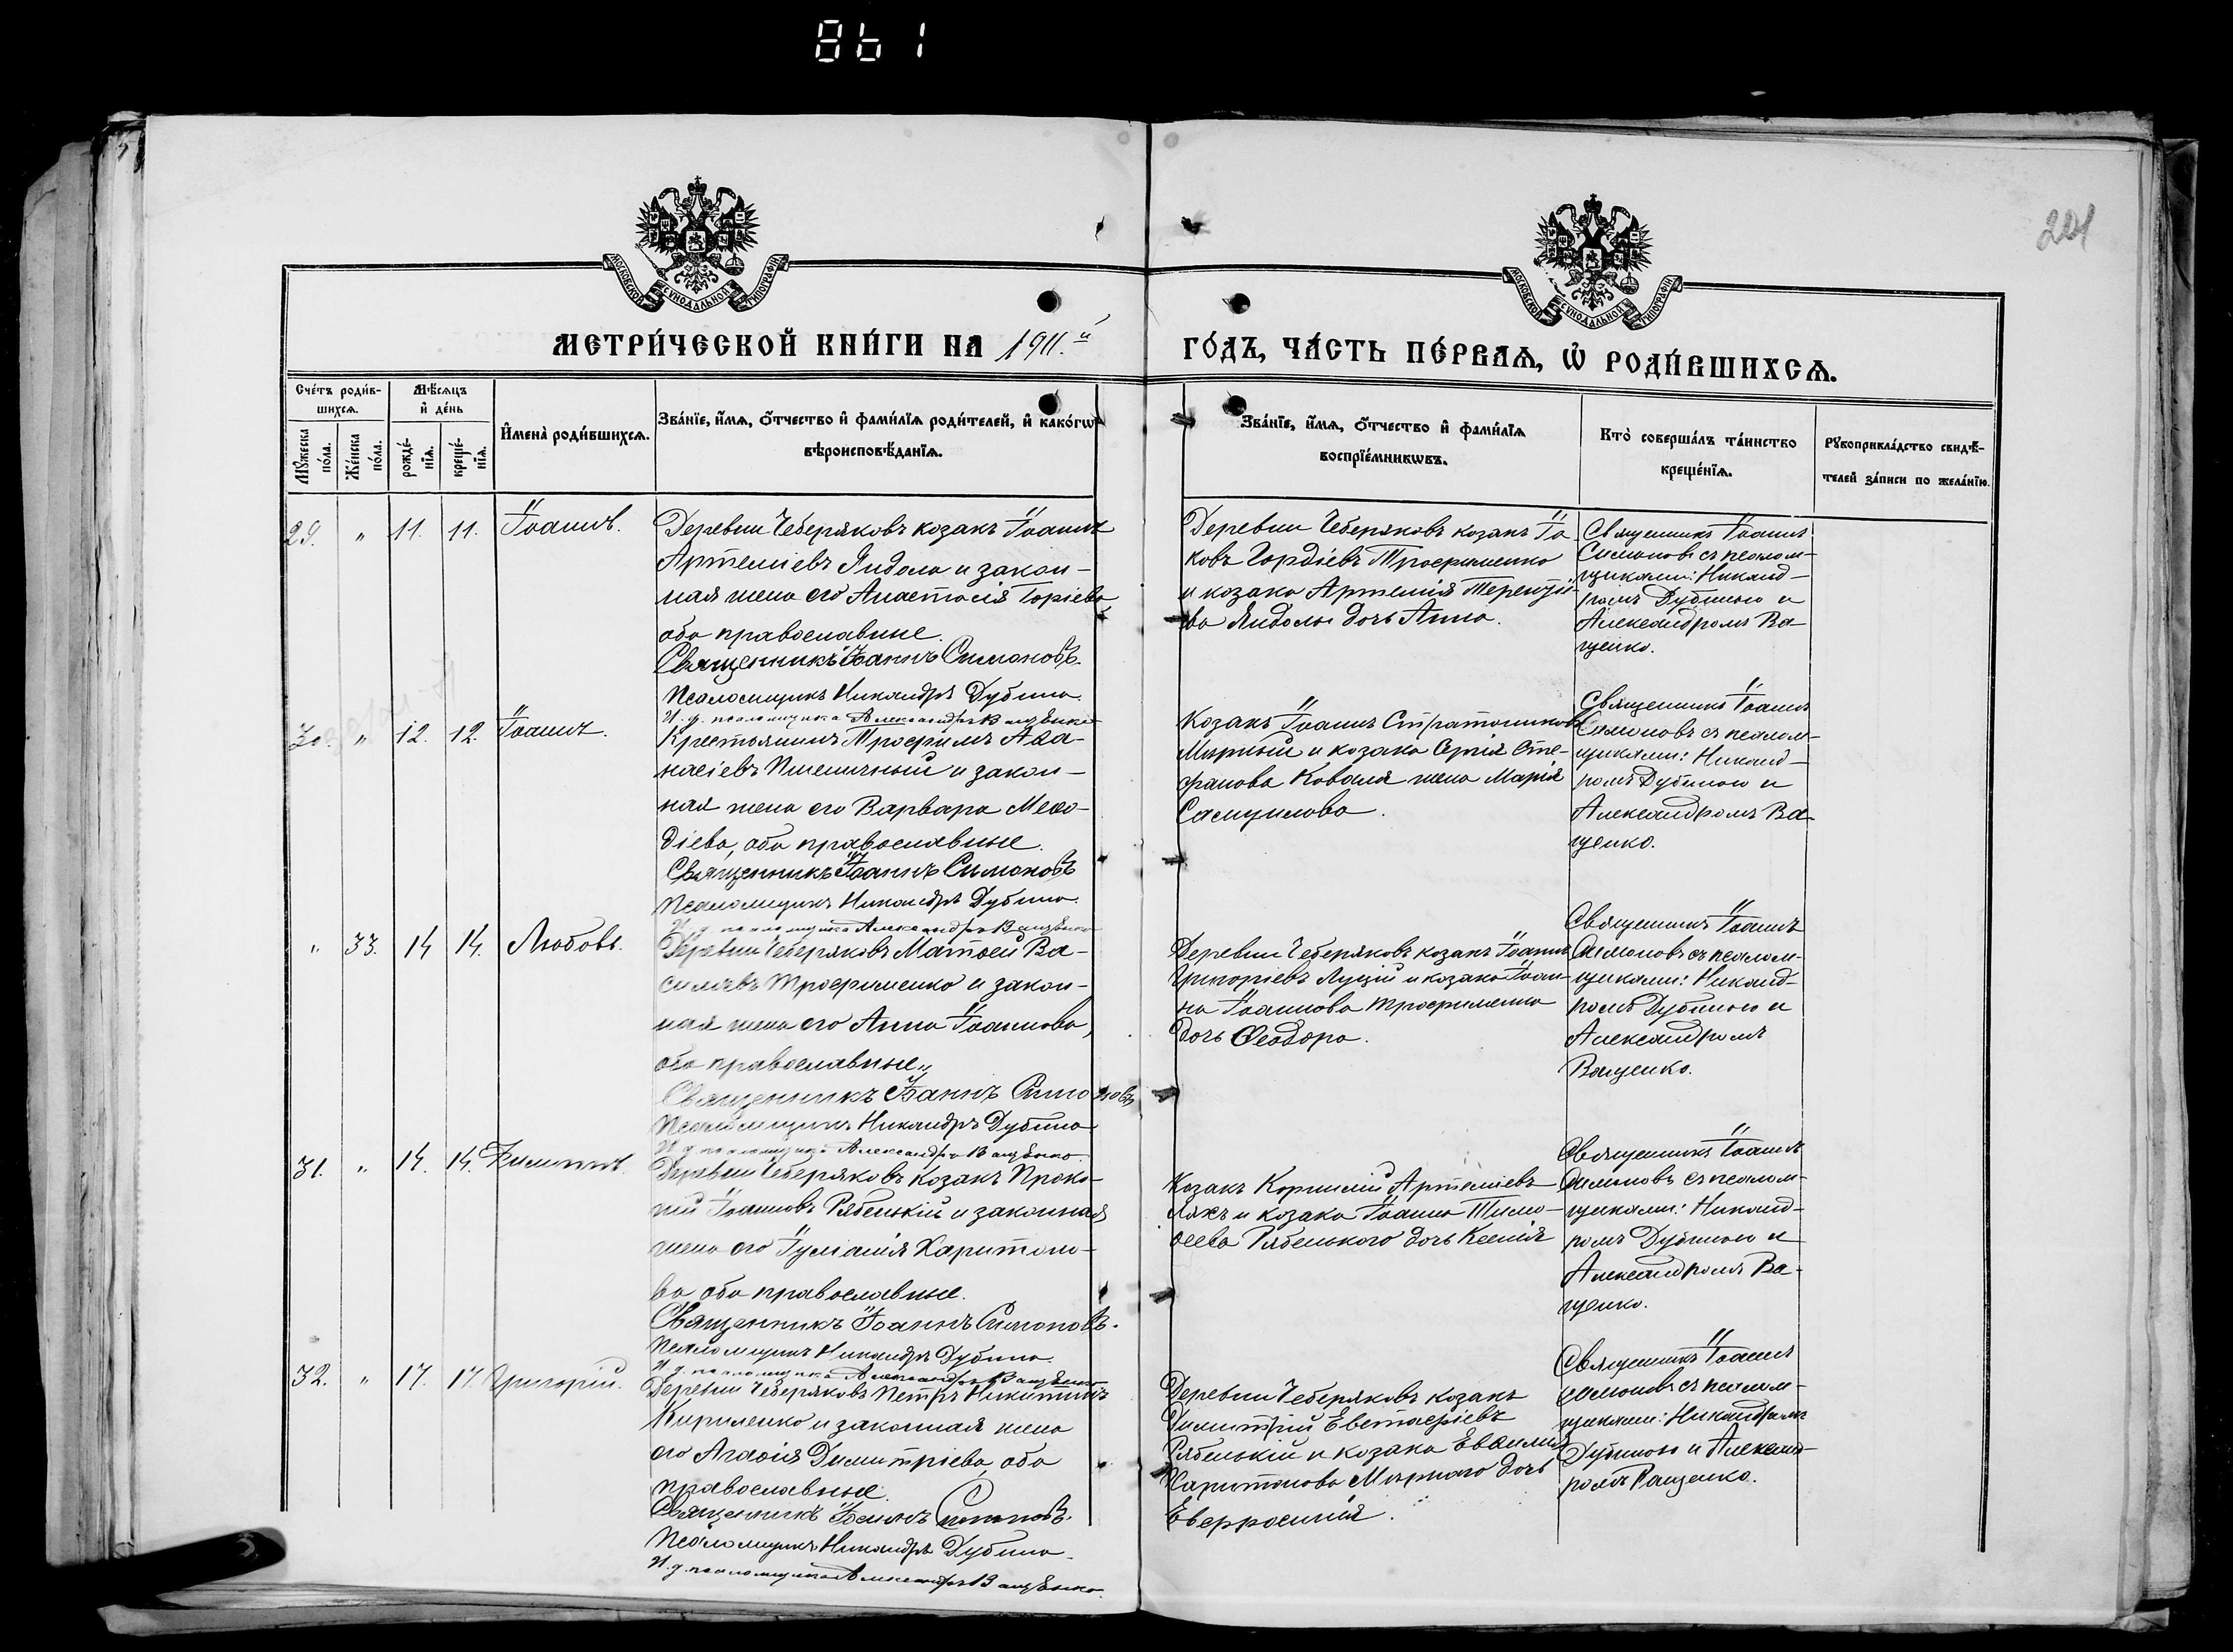 861
201
МОСКОВСКОЙ СѴНОДАЛЬНОЙ ТИПОГРАФІИ
МОСКОВСКОЙ СѴНОДАЛЬНОЙ ТИПОГРАФІИ
МЕТРИ́ЧЕСКОЙ КНИ́ГИ НА 1911.й
ГО́ДЪ, ЧА́СТЬ ПЕ́РВАѦ, Ѡ РОДИ́ВШИХСѦ.
Сче́тъ роди́в-
шихсѧ.
Мꙋ́жеска по́ла.
Же́нска по́ла.
Мѣ́сѧцъ
и҆ де́нь
рожде́-
нїѧ.
креще́-
нїѧ.
И҆мена̀ роди́вшихсѧ.
Зва́нїе, и҆́мѧ, ѻ҆́тчество и҆ фами́лїѧ роди́телей, и҆ како́гѡ
вѣроисповѣ́данїѧ.
Зва́нїе, и҆́мѧ, ѻ҆́тчество и҆ фами́лїѧ
воспрїе́мникѡвъ.
Кто̀ соверша́лъ та́инство
креще́нїѧ.
Рꙋкоприкла́дство свидѣ́-
телей за́писи по жела́нїю.
29. " 11. 11. Іоаннъ.
Деревни Чеберяковъ козакъ Іоаннъ
Артеміевъ Яидола и закон-
ная жена его Анастасія
оба православные.
Священникъ Іоаннъ Симоновъ.
Псаломщикъ Никандръ Дубина
И. д. псаломщика Александръ Ващенко
Деревни Чеберяковъ козакъ Іа
ковъ Гордіевъ Трофименко
и козака Артемія Терентіе-
ва Яидолы дочь Анна.
Священникъ Іоаннъ
Симоновъ съ псалом-
щиками: Никанд-
ромъ Дубиною и
Александромъ Ва-
щенко.
30. " 12. 12. Іоаннъ.
Крестьянинъ Трофимъ Аѳа-
насіевъ Пшеничный и закон-
ная жена его Варвара Меѳо-
діева, оба православные.
Священникъ Іоаннъ Симоновъ
Псаломщикъ Никандръ Дубина.
И. д. псаломщика Александръ Ващенко
Козакъ Іоаннъ Стратониковъ
Мирный и козака Сергія Сте-
фанова Коваля жена Марія
Самуилова.
Священникъ Іоаннъ
Симоновъ съ псалом-
щиками: Никанд-
ромъ Дубиною и
Александромъ Ва-
щенко.
" 33. 14 14. Любовь.
Деревни Чеберяковъ Матѳей Ва-
сильевъ Трофименко и закон-
ная жена его Анна Іоаннова,
оба православные.
Священникъ Іоаннъ Симоновъ
Псаломщикъ Никандръ Дубина
И. д. псаломщика Александръ Ващенко.
Деревни Чеберяковъ козакъ Іоаннъ
Григоріевъ Луцій и козака Іоан-
на Іоаннова Трофименко
дочь Ѳеодора.
Священникъ Іоаннъ
Симоновъ съ псалом-
щиками: Никанд-
ромъ Дубиною и
Александромъ
Ващенко.
31. " 14. 14.
Деревни Чеберяковъ козакъ Проко-
пій Іоанновъ Рябенькій и законная
жена его Іуліанія Харитоно-
ва оба православные.
Священникъ Іоаннъ Симоновъ.
Псаломщикъ Никандръ Дубина.
И. д. псаломщика Александръ Ващенко
Козакъ Корнилій Артеміевъ
Ляхъ и козака Іоанна Тимо-
ѳеева Рябенького дочь Ксенія
Священникъ Іоаннъ
Симоновъ съ псалом-
щиками: Никанд-
ромъ Дубиною и
Александромъ Ва-
щенко.
32. " 17. 17. Григорій.
Деревни Чеберяковъ Петръ Никитинъ
Кириленко и законная жена
его Агаѳія Димитріева, оба
православные.
Священникъ Іоаннъ Симоновъ.
Псаломщикъ Никандръ Дубина.
И. д. псаломщика Александръ Ващенко.
Деревни Чеберяковъ козакъ
Димитрій Евстафіевъ
Рябенькій и козака Евѳимія
Харитонова Мирнаго дочь
Евфросинія.
Священникъ Іоаннъ
Симоновъ съ псалом-
щиками: Никандромъ
Дубиною и Александ-
ромъ Ващенко.